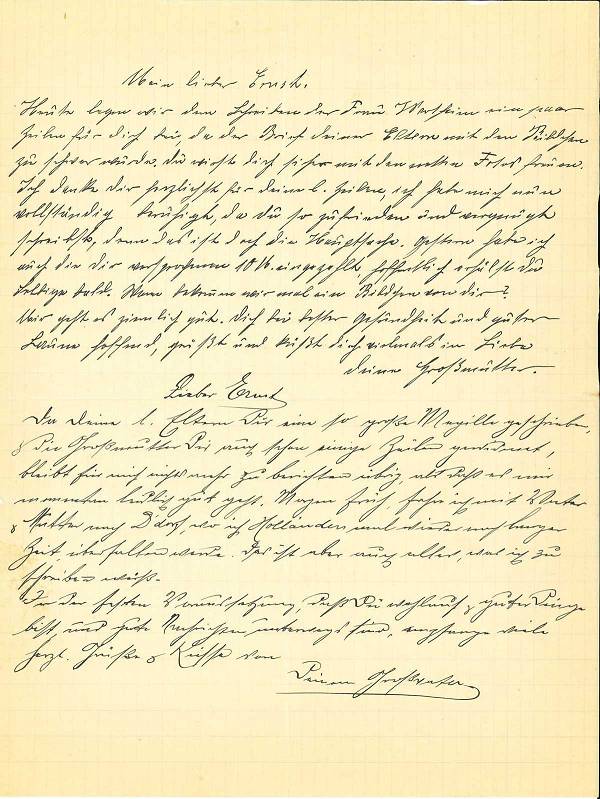 Mein lieber Ernst.
Heute legen wir dem Schreiben der Frau Wertheim ein paar
Zeilen für dich bei, da der Brief deiner Eltern mit den Bildchen
zu schwer würde, du wirst dich sicher mit den netten Fotos freuen.
Ich danke dir herzlichst für deine l. Zeilen, ich habe mich nun
vollständig beruhigt, da du so zufrieden und vergnügt
schreibst, denn das ist doch die Hauptsache. Gestern habe ich
auch die dir versprochenen 10 M. eingezahlt, hoffentlich erhälst du
selbige bald. Wann bekommen wir mal ein Bildchen von dir?
Mir geht es ziemlich gut. Dich bei bester Gesundheit und guter
Laune hoffend, grüßt und küßt dich vielmals in Liebe
deine Großmutter.
Lieber Ernst
Da Deine l. Eltern Dir eine so große Megille geschrieben,
& die Großmutter Dir auch schon einige Zeilen gewidmet,
bleibt für mich nichts mehr zu berichten übrig als daß es mir
momentan leidlich gut geht. Morgen früh fahre ich mit Vater
& Mutter nach D'dorf, wo ich Holländer mal wieder nach langer
Zeit überfallen werde. Das ist aber auch alles, was ich zu
schreiben weiß.
In der festen Voraussetzung, daß Du wohlauf & guter Dinge
bist, und gute Nachrichten unterwegs sind, empfange viele
herzl. Grüße & Küsse von
Deinem Großvater